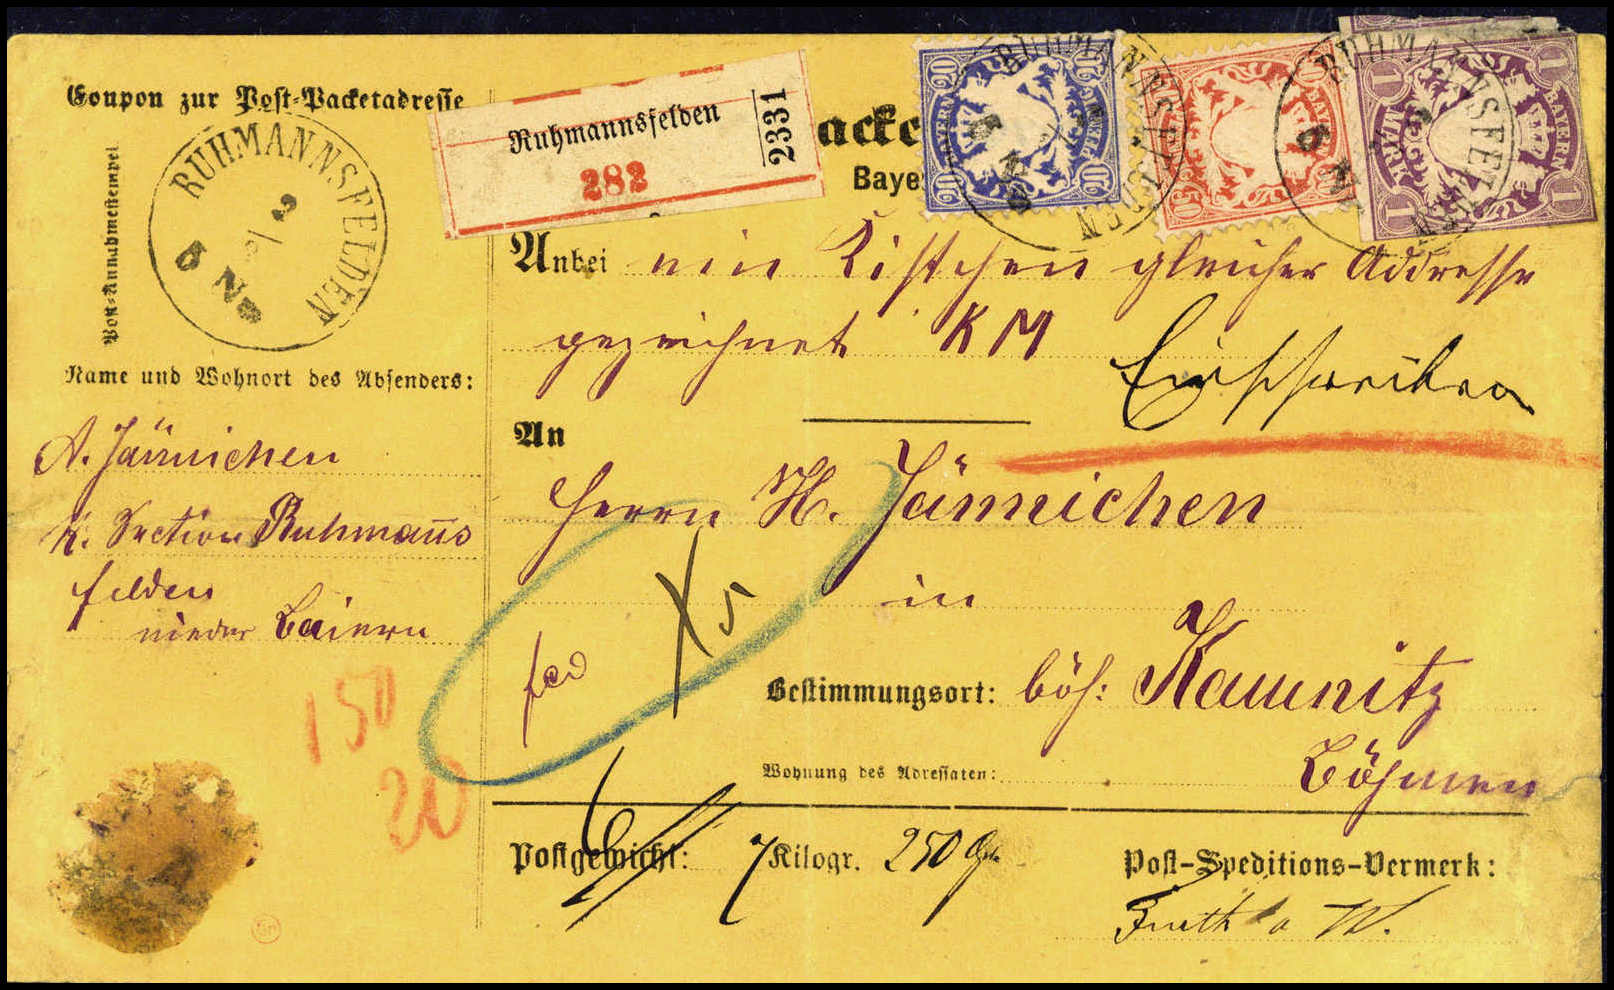 Coupon zur Post-Packetadresse
Post-Annahmestempel
RUHMANNSFELDEN
5 Nm
Name und Wohnort des Absenders:
A. Jännichen
k. Section Ruhmans
felden
nieder Baiern
150
20
Ruhmannsfelden
282
2331
acke
Baye
20 20
BAYERN PFENNIG
20 20
RUHMANNSFELDEN
10
1 1
MARK BAYERN
1 1
RUHMANNSFELDEN
Anbei ein Kistchen gleicher Addresse
gezeichnet KM
Einschreiben
An
Herrn H. Jännichen
in
Bestimmungsort: böh: Kamnitz
Wohnung des Adressaten:
Böhmen
Postgewicht: 7 Kilogr. 250 Gr
Post-Speditions-Vermerk:
Furth a W.